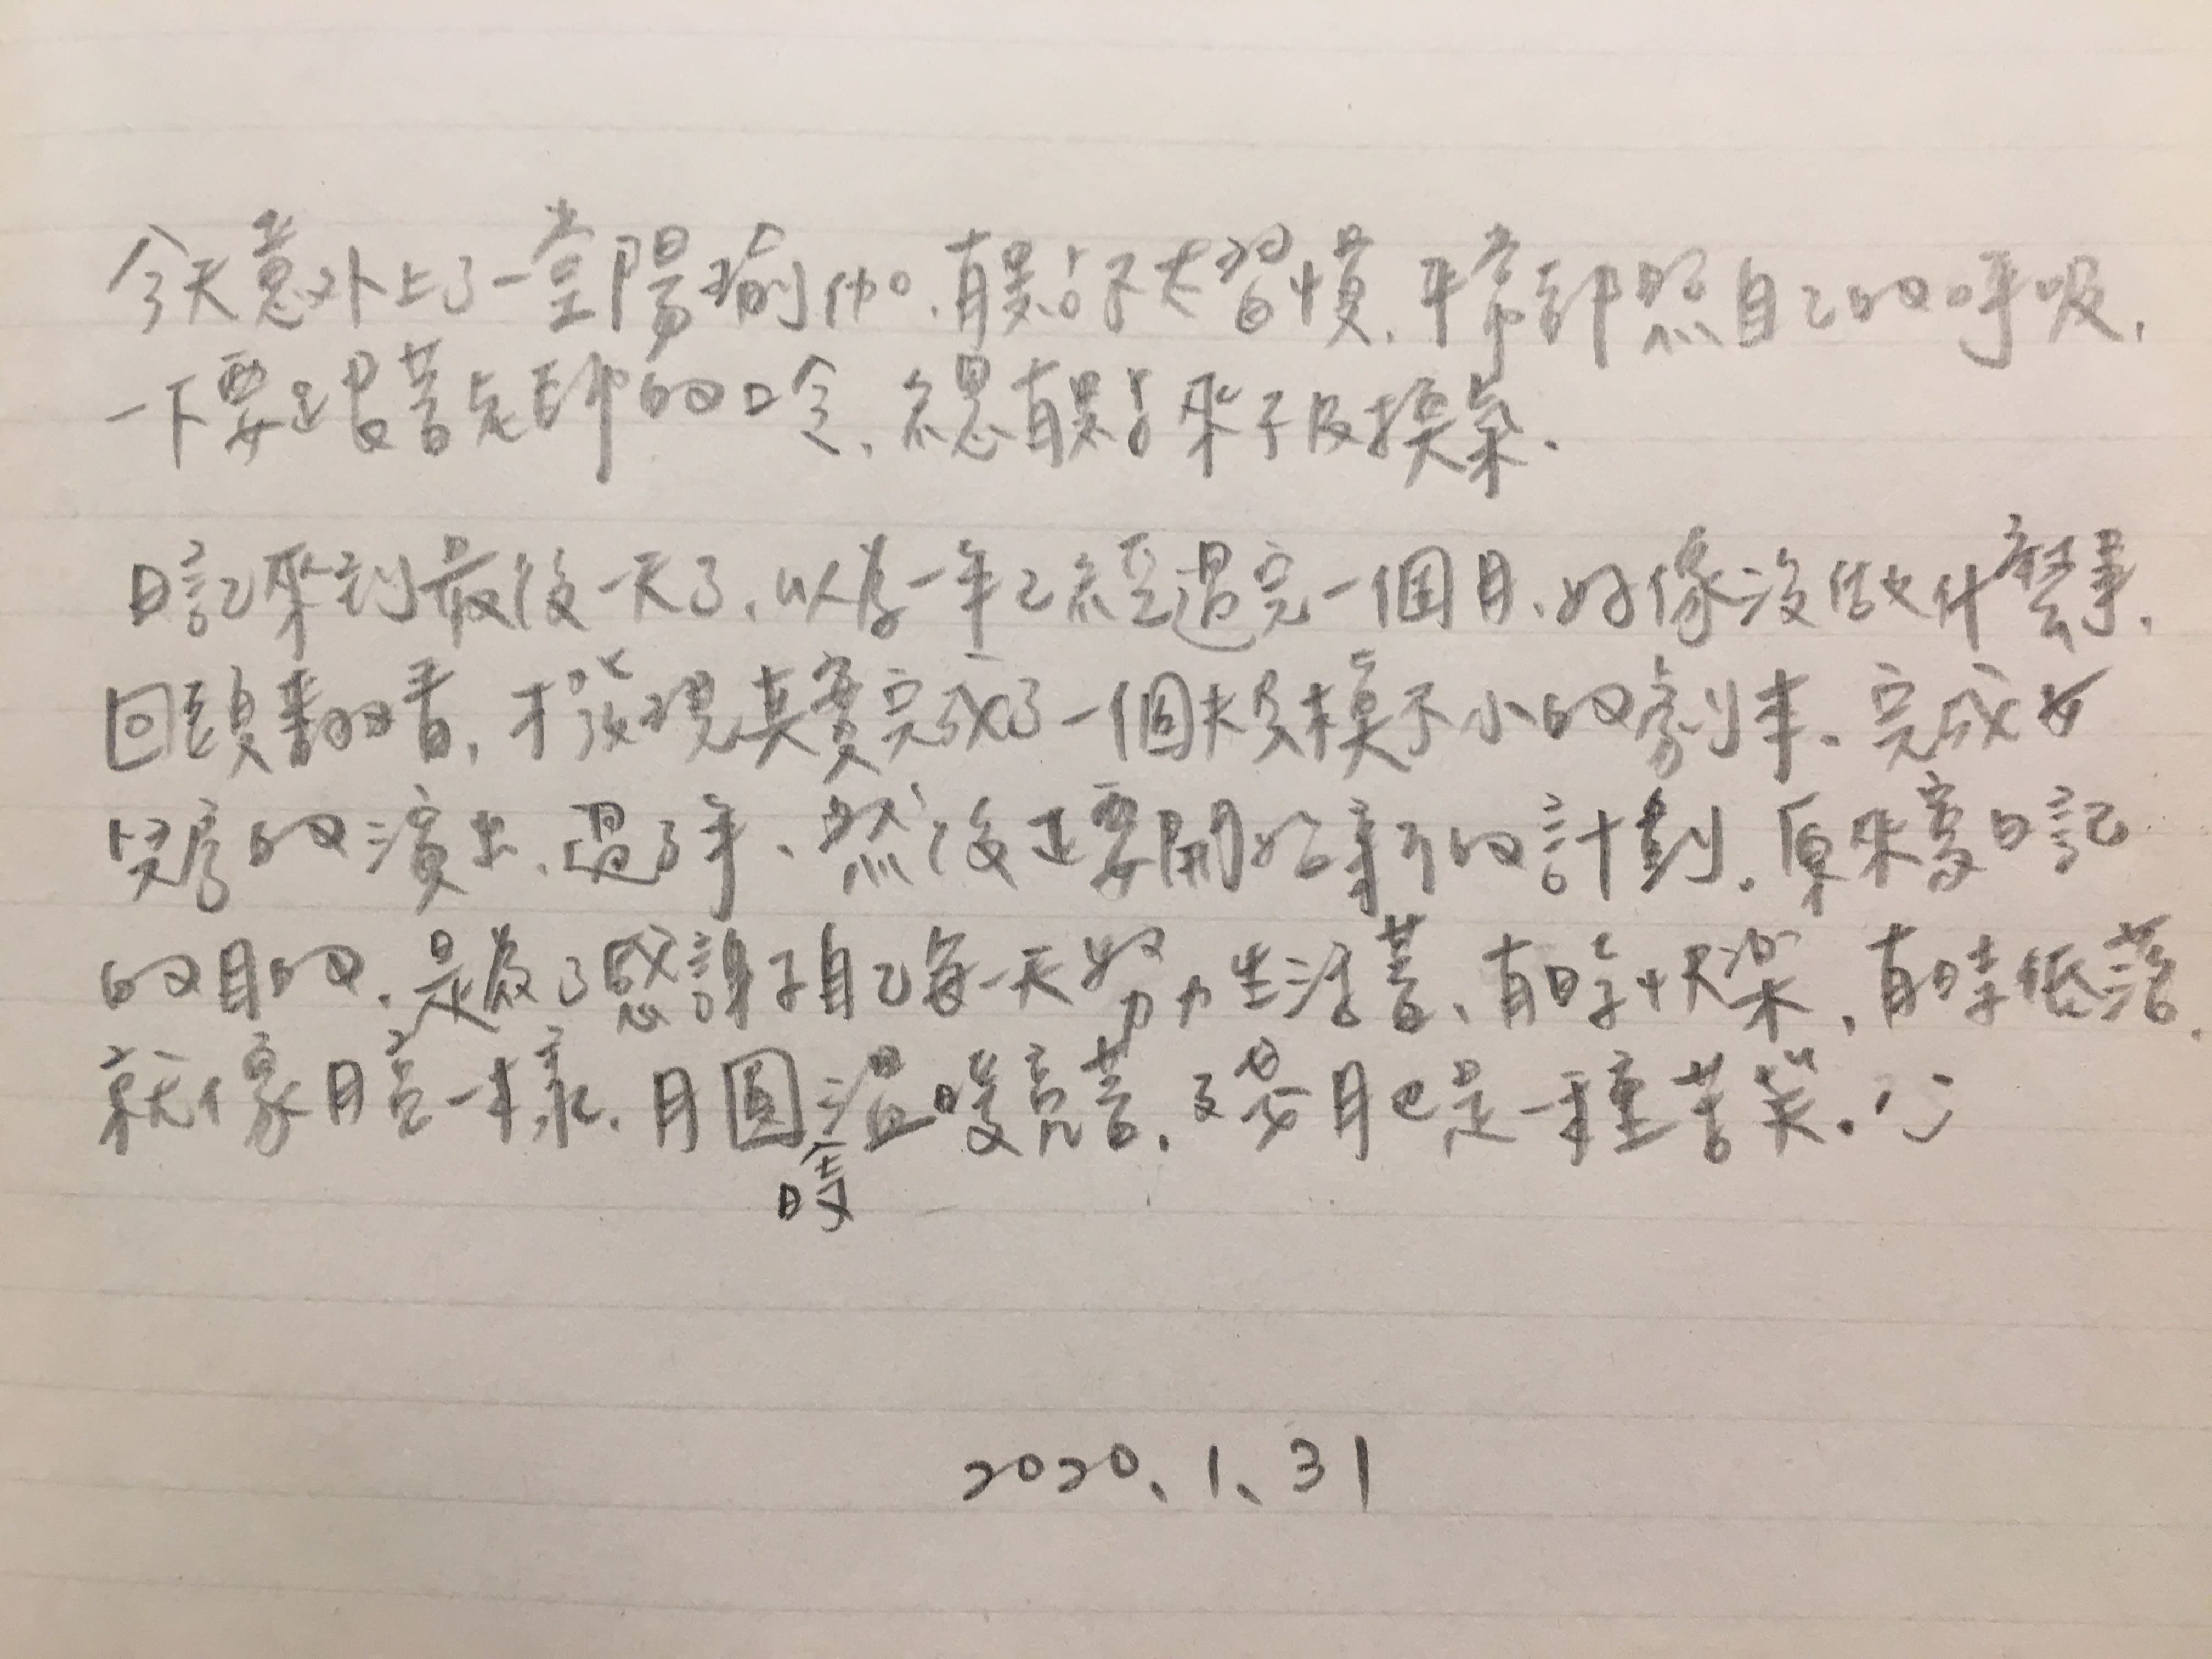 今天意外上了一堂陽瑜伽、有點不太習慣、平常都照自己的呼吸、
一下要跟著老師的口令、總有點來不及換氣、
日記來到最後一天了、以為一年已經過完一個月、好像沒做什麼事、
回頭翻看、才發現其實完成了一個規模不小的劇本、完成女
兒房的演出、過了年、然後正要開始新的計劃、原來寫日記
的目的、是為了感謝自己每一天努力生活著、有時快樂、有時低落、
就像月亮一樣、月圓時溫暖亮著、彎月也是一種苦笑。
2020、1、31